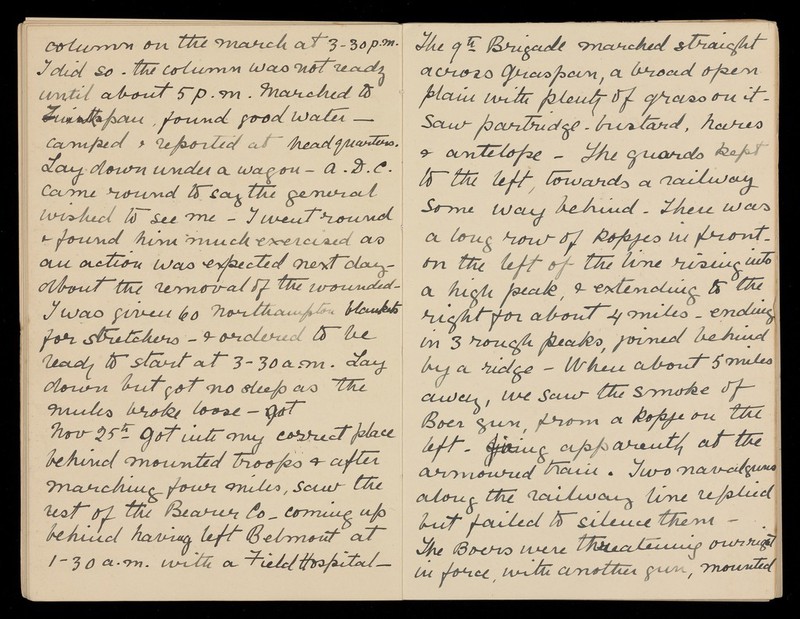 column on the march at 3-30 p.m.
I did so. the column was not ready
until about 5 p.m. Marched to
found good water —
camped & reported at headquarters.
Lay down under a wagon — A.D.C.
came round to say the general
wished to see me — I went round
& found him much exercised as
an action was expected next day —
about the removal of the wounded —
I was given 60 Northampton blankets
for stretchers — & ordered to be
ready to start at 3-30 a.m. Lay
down but got no sleep as the
mules broke loose — got
Nov 25th Got into my correct place
behind mounted troops & after
marching four miles, saw the
rest of the Bearer Co_ coming up
behind having left Belmont at
1-30 a.m. with a Field Hospital —
The 9th Brigade marched straight
across Graspan, a broad open
plain with plenty of grass on it -
Saw partridge - bustard, hares
& antelope - The guards kept
to the left, towards a railway
some way behind - There was
a long row of kopjes in front -
on the left of the line rising into
a high peak, & extending to the
right for about 4 miles - ending
in 3 rough peaks, joined behind
by a ridge - When about 5 miles
away, we saw the smoke of
Boer gun, from a kopje on the
left - apparently at the
armoured train. Two naval guns
along the railway line replied
but failed to silence them -
The Boers were threatening our right
in force, with another gun, mounted